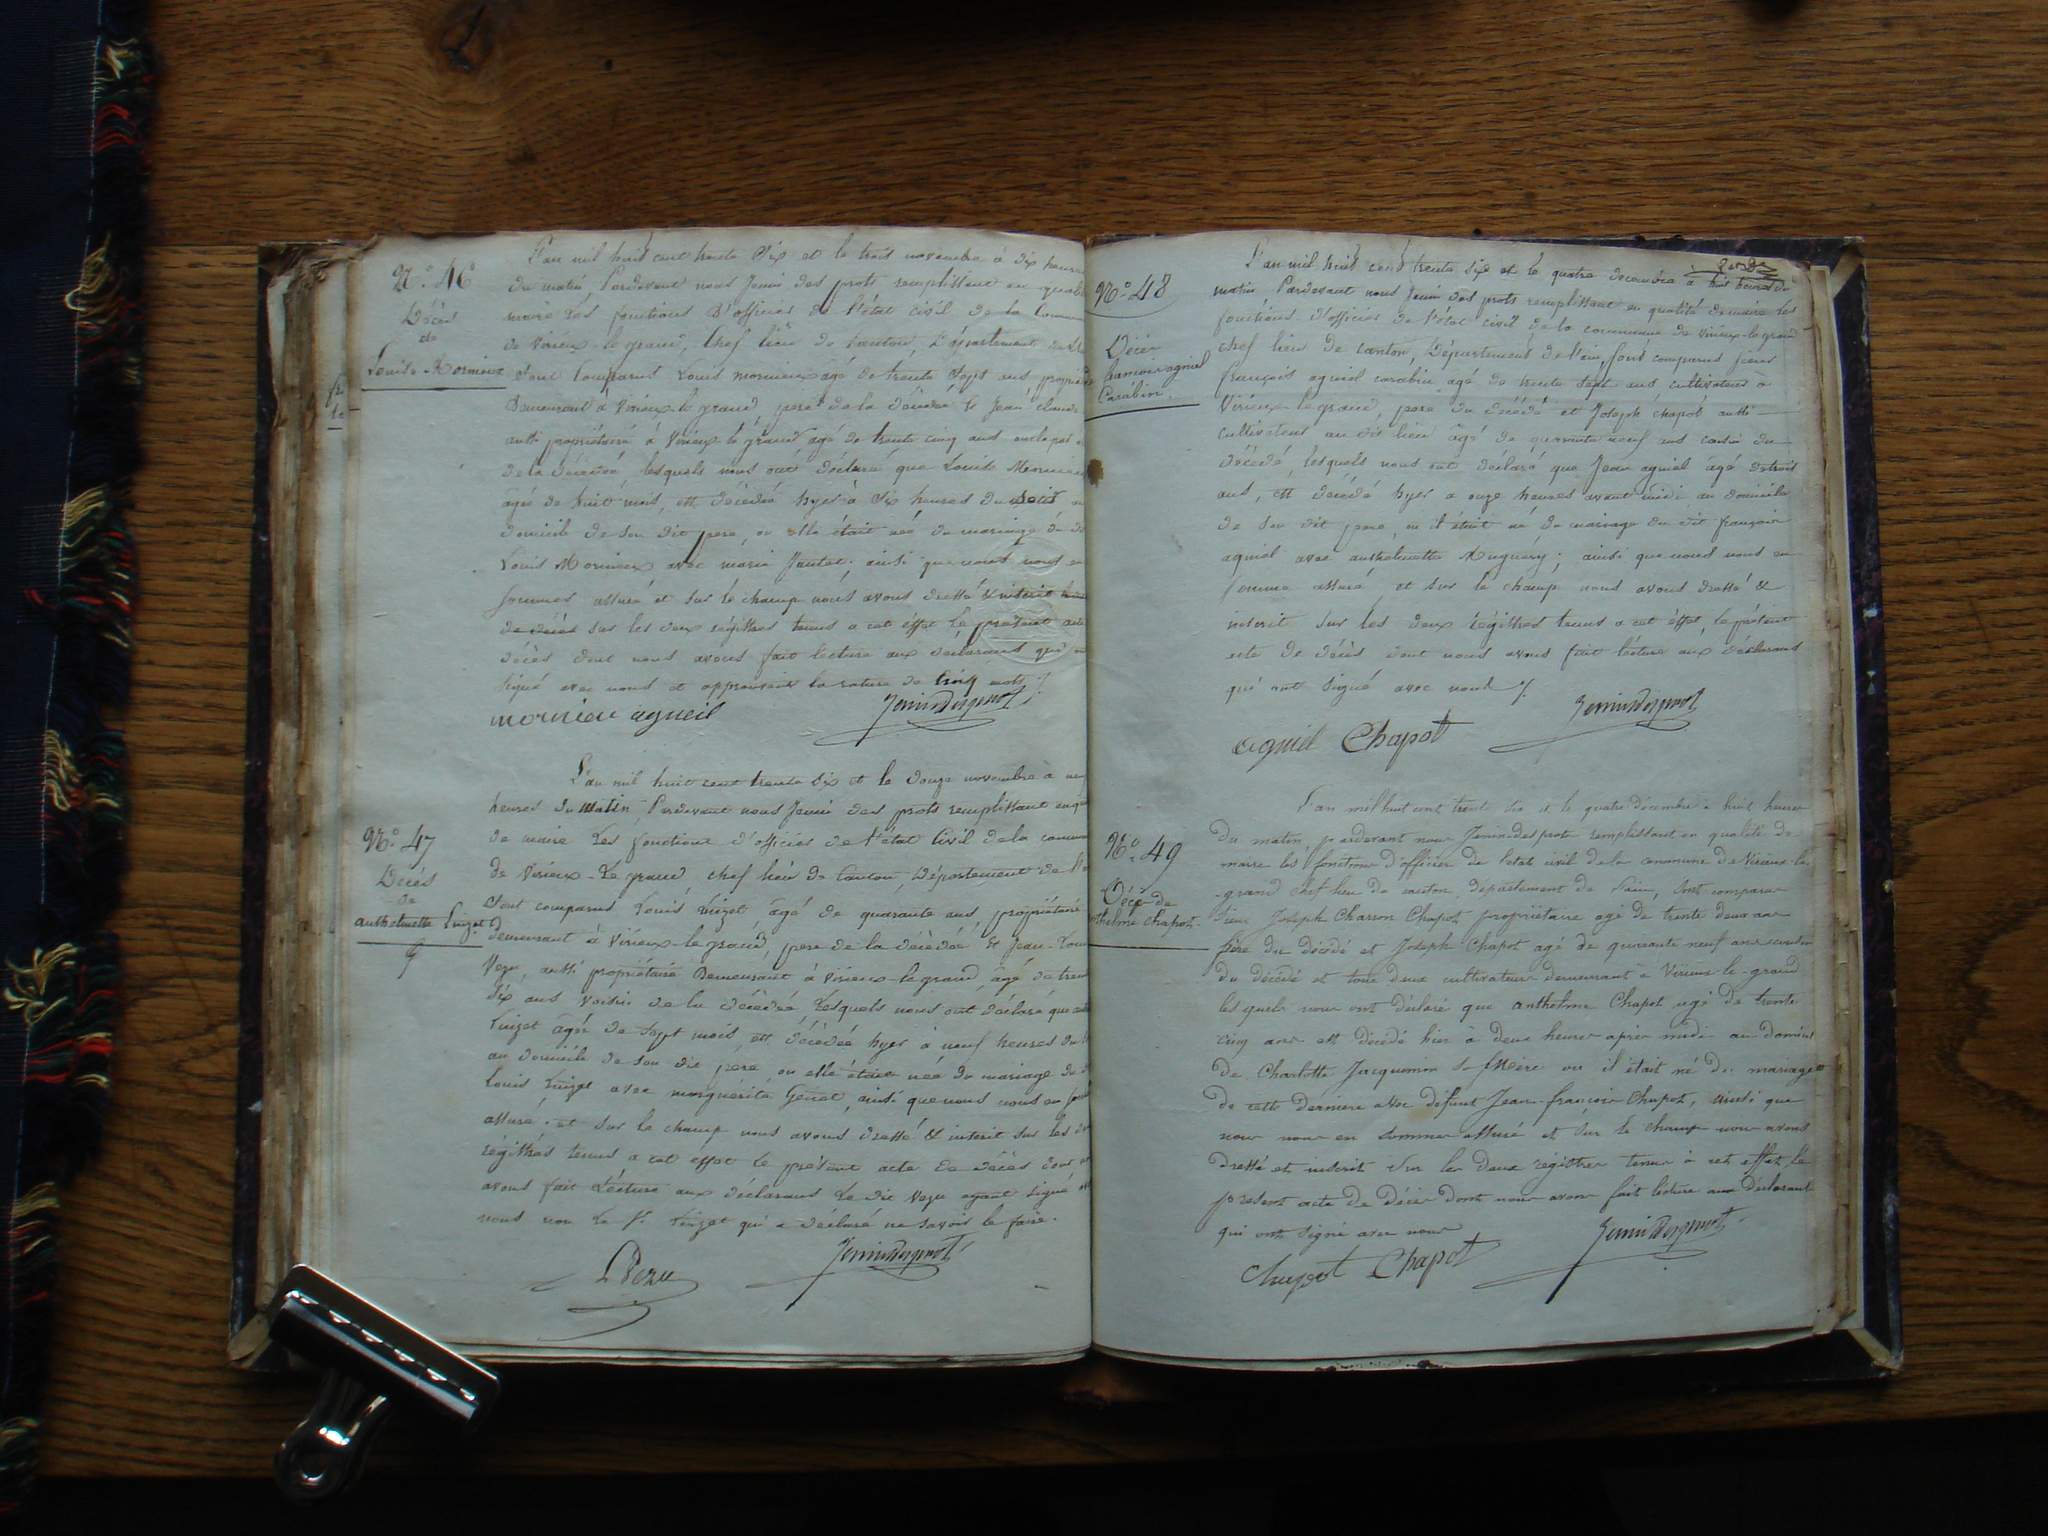 N.° 46
Décès
de
Louise Mornieux
L'an mil huit cent trente six et le trois novembre à dix heures
du matin, Pardevant nous Jenin des prots remplissant en
maire les fonctions d'officier de l'état civil de la
de Virieux-le-grand, Chef lieu de Canton, Département
Sont Comparus Louis Mornieux agé de trente sept ans
Demeurant à Virieux-le-grand, pere de la décédée et Jean Claude
aussi propriétaire à Virieux le grand agé de trente cinq ans
de la décédée, lesquels nous ont déclaré que Louise
agée de huit mois, est décédée hyer à six heures du soir au
domicile de son dit pere, ou elle était née du mariage du
Louis Mornieux avec marie ; ainsi que nous nous en
sommes assuré et sur le champ nous avons dressé & inscrit
de décès sur les deux régistres tenus a cet effet le présent acte
décès dont nous avons fait lecture aux déclarans qui
signé avec nous et approuvent la rature de trois mots ./.
mornieu agueil Jenindesprost
N.° 47
Décès
de
anthelmette Luizet
L'an mil huit cent trente six et le douze novembre à
heures du matin, Pardevant nous Jenin des prots remplissant
de maire les fonctions d'officier de l'état Civil de la
de Virieux-le-grand, chef lieu de Canton, Département de
Sont comparus Louis Luizet, âgé de quarante ans, propriétaire
demeurant à Virieux-le-grand, pere de la décédée et Jean-
Vezu, aussi propriétaire demeurant à Virieux-le-grand, âgé de
six ans voisin de la décédée, lesquels nous ont déclaré que
Luizet âgée de sept mois, est décédée hyer à neuf heures du
au domicile de son dit pere, ou elle était née du mariage du
Louis Luizet avec marguerite, ainsi que nous nous en
assuré. et sur le champ nous avons dressé & inscrit sur les
régistres tenus a cet effet le présent acte de décès dont
avons fait lecture aux déclarans le dit Vezu ayant signé
nous non le S.r Luizet qui a déclaré ne savoir le faire.
L Vezu Jenindesprost
N.° 48
Décès
francois agniel
Carabin.
L'an mil huit cent trente six et le quatre décembre à huit heures du
matin Pardevant nous Jenin des prots remplissant en qualité de maire les
fonctions d'officier de l'état civil de la commune de Virieux-le-grand
chef lieu de canton, Département de l'ain, sont comparus sieur
françois agniel carabin, agé de trente sept ans cultivateur à
Virieux-le-grand, pere du décédé et Joseph chapot aussi
cultivateur au dit lieu âgé de quarante neuf ans cousin du
décédé, lesquels nous ont déclaré que Jean agniel âgé de trois
ans, est décédé hyer a onze heures avant midi au domicile
de son dit pere, ou il était né du mariage du dit françois
agniel avec anthelmette ; ainsi que nous nous en
somme assuré et sur le champ nous avons dressé &
inscrit sur les deux régistres tenus a cet effet, le présent
acte de décès dont nous avons fait lecture aux déclarans
qui ont signé avec nous ./.
agniel Chapot Jenindesprost
N.° 49
Décès de
thelme Chapot
L'an mil huit cent trente six et le quatre décembre à huit heures
du matin, pardevant nous Jenin-desprots remplissant en qualité de
maire les fonctions d'officier de l'état civil de la commune de Virieux-le-
grand chef lieu de canton, département de l'ain, sont comparus
sieur Joseph Charron Chapot propriétaire agé de trente deux ans
frère du décédé et Joseph Chapot agé de quarante neuf ans cousin
du décédé et tous deux cultivateur demeurant à Virieux-le-grand
lesquels nous ont déclaré que anthelme Chapot agé de trente
cinq ans est décédé hier à deux heures après midi au domicile
de Charlotte Jacquemin sa Mère ou il était né du mariage
de cette dernière avec défunt Jean-françois Chapot, ainsi que
nous nous en sommes assuré et sur le champ nous avons
dressé et inscrit sur les deux régistres tenus à cet effet le
présent acte de décès dont nous avons fait lecture aux déclarant
qui ont signé avec nous
Chapot Chapot Jenindesprost